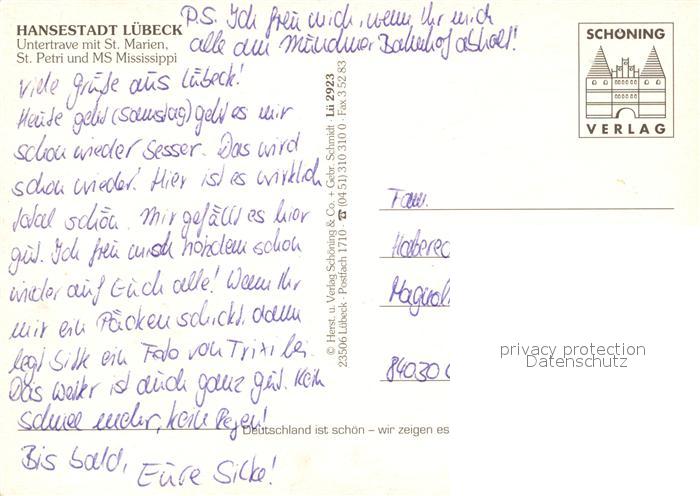 HANSESTADT LÜBECK
Untertrave mit St. Marien,
St. Petri und MS Mississippi
P.S. Ich freu mich, wenn Ihr mich
alle am Münchner Bahnhof abholt!
Viele Grüße aus Lübeck!
Heute geht (Samstag) geht es mir
schon wieder besser. Das wird
schon wieder! Hier ist es wirklich
total schön. Mir gefällt es hier
gut. Ich freu mich trotzdem schon
wieder auf Euch alle! Wenn Ihr
mir ein Päcken schickt, dann
legt bitte ein Foto von Trixi bei.
Das Wetter ist auch ganz gut. Kein
Schnee mehr, kein Regen!
Bis bald,
Eure Silke!
© Herst. u. Verlag Schöning & Co. + Gebr. Schmidt · Lü 2923
23506 Lübeck · Postfach 1710 · ☎ (04 51) 310 310 0 · Fax 3 52 83
SCHÖNING
VERLAG
Fam.
84030
privacy protection
Datenschutz
Deutschland ist schön – wir zeigen es